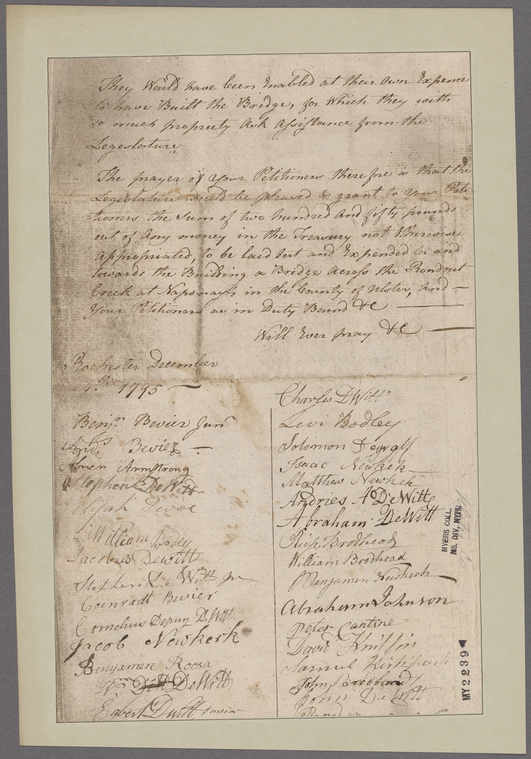 They Would have been Enabled at their own Expence
to have Built the Bredge, for Which they with
so much propriety Ask Assistance from the
Legeslature,
The prayer of Your Petitioners therefore is that the
Legeslature would be pleased to grant to Your Peti-
tioners the Sum of two hundred And fifty pounds
out of Any money in the Treasury not Otherwise
Appropriated, to be laid Out and Expended in and
towards the Building a Bredge Across the Rondout
Creek at Naponagh in the County of Ulster, And —
Your Petitioners as in Duty Bound &C —
Will Ever pray &C —
Rochester December
1795 —
Benjn. Bevier Junr
Bevier —
Armstrong
Stephen DeWitt
William Bodley
Jacobus Dewitt
Stephen De Witt Jr
Coenradt Bevier
Cornelius Depuy D Witt
Jacob Newkerk
Benjamen Roosa
DeWitt
Egbert Dwitt Junior
Charles DWitt
Levi Bodley
Solomon
Isaac Newkerk
Matthew Newkerk
Andries DeWitt
Abraham DeWitt
Rich. Brodhead
William Brodhead
Benjamen Newkerk
Abraham Johnson
Peter Cantine
David Kniffin
Samuel
John
De Witt
MYERS COLL.
MS. DIV., NYPL
MY2239